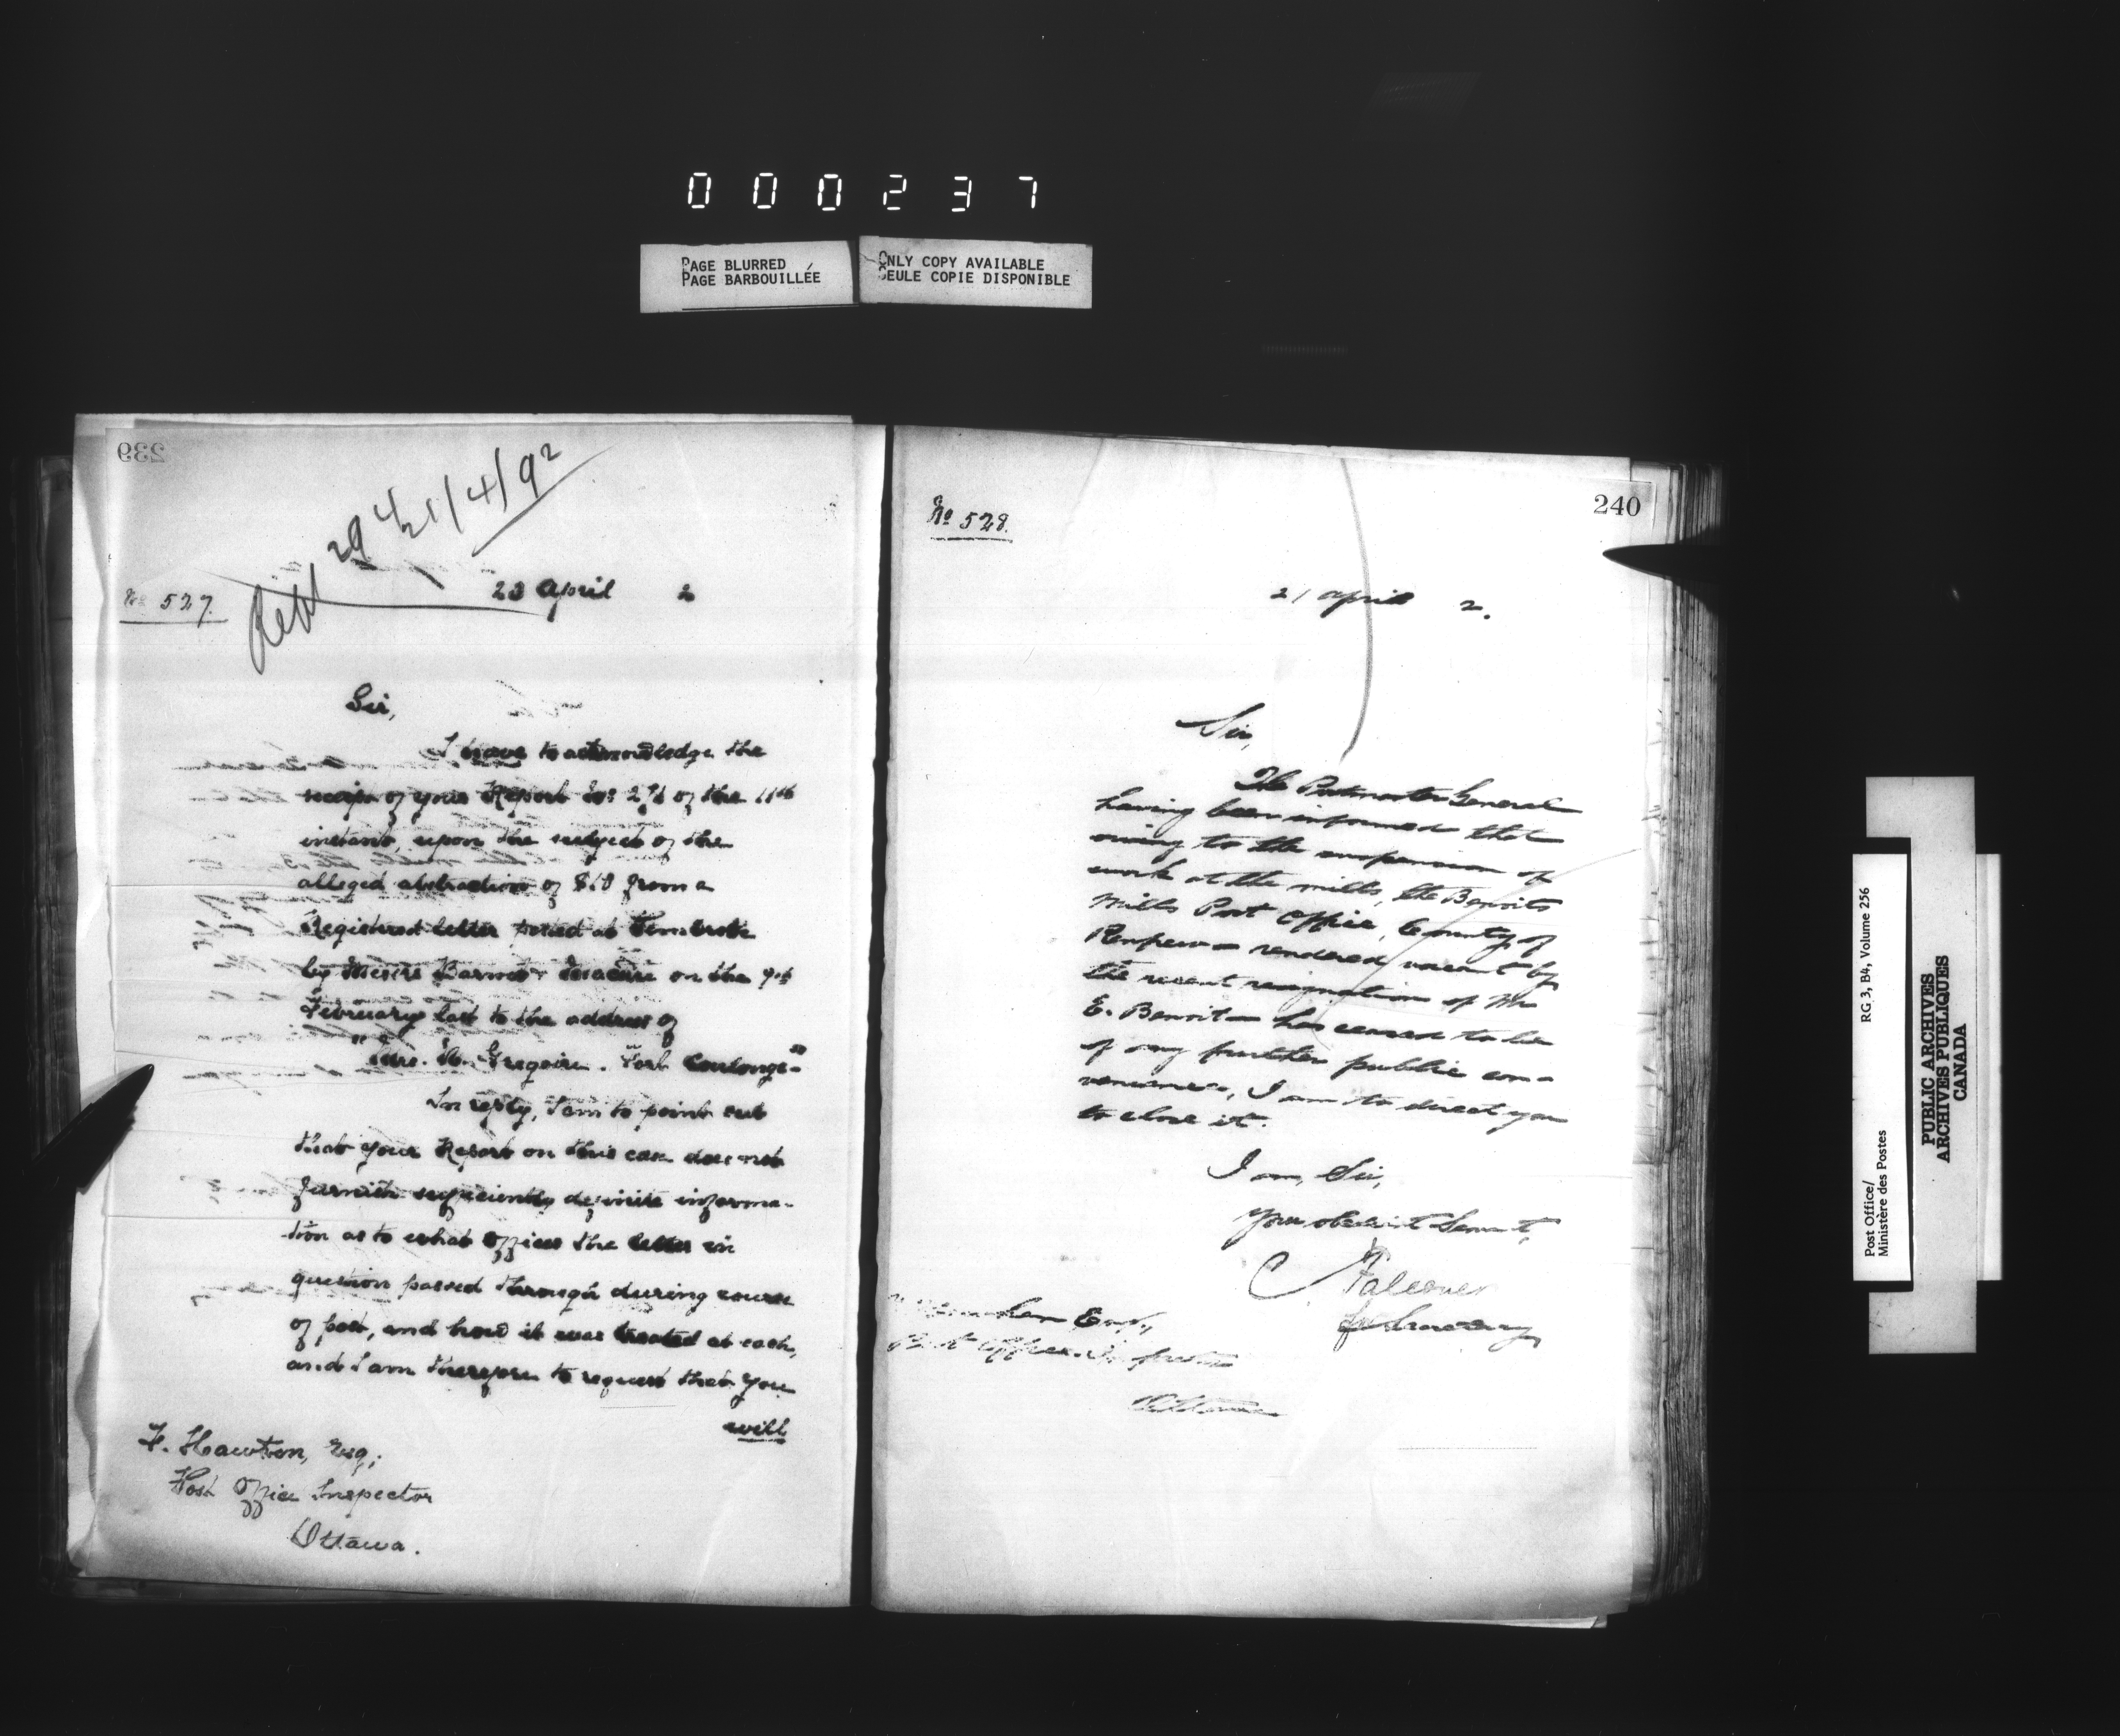 000237
PAGE BLURRED
PAGE BARBOUILLÉE
ONLY COPY AVAILABLE
SEULE COPIE DISPONIBLE
239
Rept 294/21/4/92
No 527.
20 April 2
Sir,
I have to acknowledge the
receipt of your Report No: of the 11th
instant, upon the subject of the
alleged abstraction of $10 from a
Registered letter posted at Pembroke
by Messrs on the 9th
February last to the address of
"Mrs. Gregoire. Fort Coulonge"
In reply, I am to point out
that your Report on this case does not
furnish sufficiently definite informa-
tion as to what offices the letter in
question passed through during course
of post, and how it was treated at each,
and I am therefore to request that you
will
F. Hawton, Esq;
Post Office Inspector
Ottawa.
240
No 528.
21 April 2.
Sir,
The Postmaster General
having been informed that
owing to the suspension of
work at the mills, the Benoits
Mills Post Office, County of
Renfrew – rendered vacant by
the recent resignation of Mr
E. Benoit – has ceased to be
of any further public con-
venience, I am to direct you
to close it.
I am, Sir,
Your obedient Servant,
C Falconer
for Secretary
Esq.,
Post Office Inspector
Ottawa
Post Office/
Ministère des Postes
RG 3, B4, Volume 256
PUBLIC ARCHIVES
ARCHIVES PUBLIQUES
CANADA